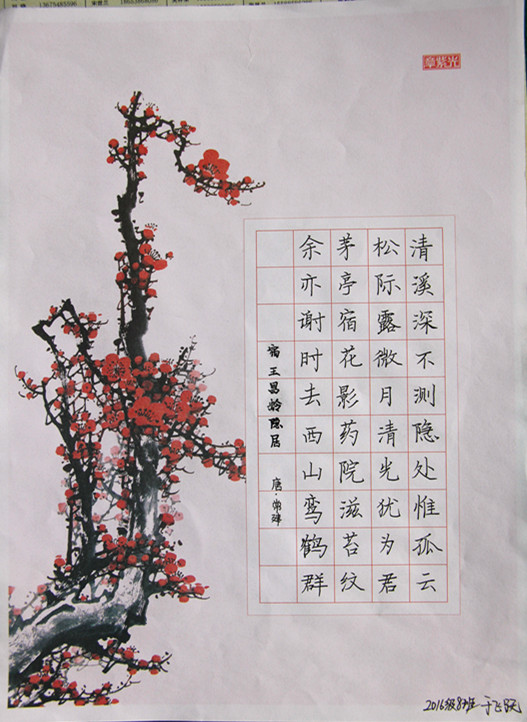 章紫光
清溪深不测隐处惟孤云
松际露微月清光犹为君
茅亭宿花影药院滋苔纹
余亦谢时去西山鸾鹤群
宿王昌龄隐居
唐·常建
2016级8班 于飞跃